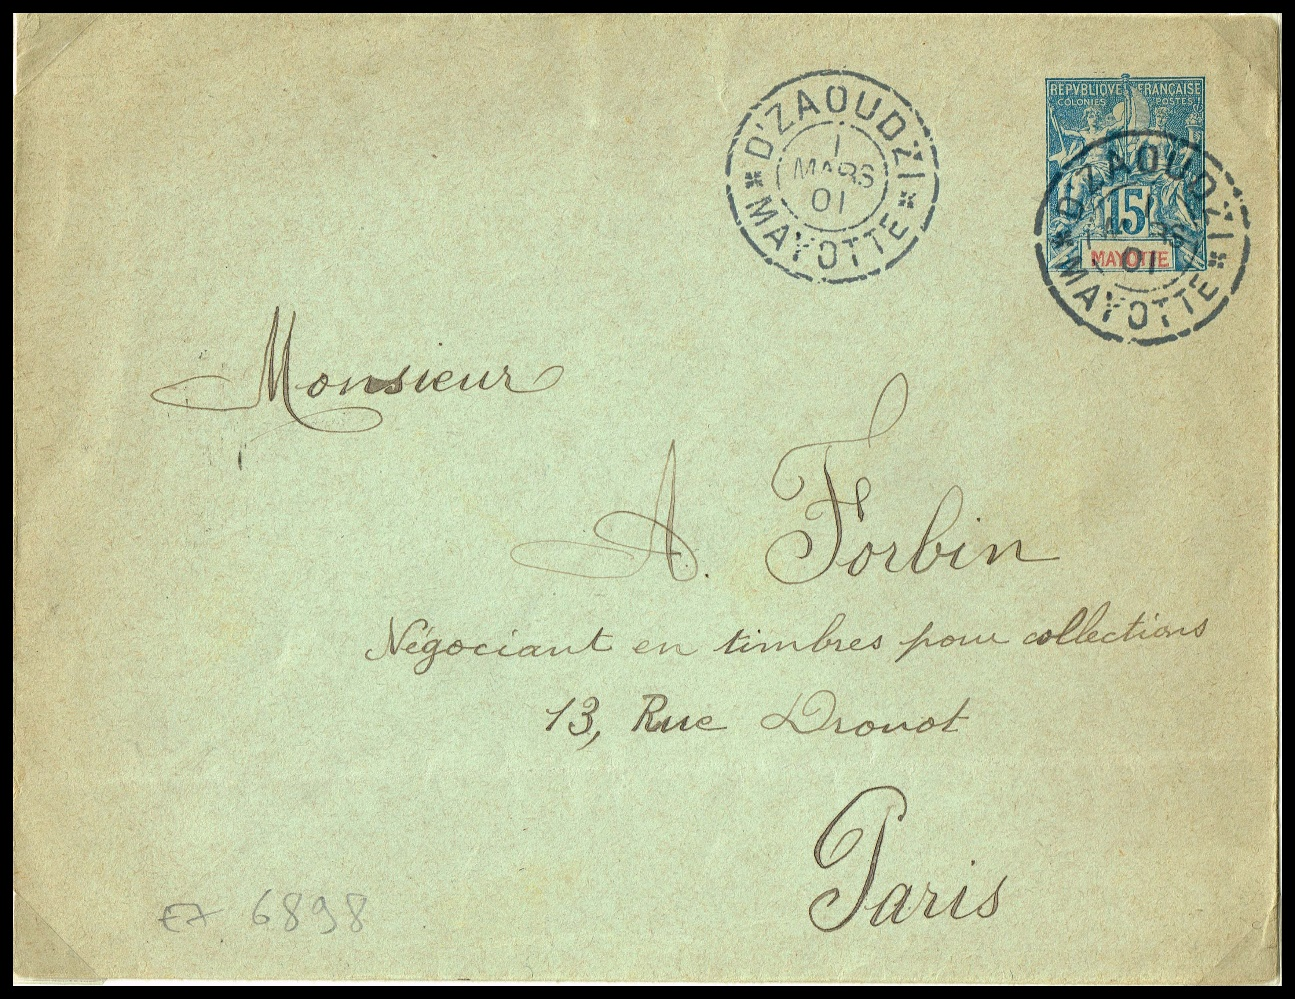 D'ZAOUDZI
1
MARS
01
MAYOTTE
REPVBLIQVE FRANÇAISE
COLONIES POSTES
15
MAYOTTE
D'ZAOUDZI
1
MARS
01
MAYOTTE
Monsieur
A. Forbin
Négociant en timbres pour collections
13, Rue Drouot
Paris
6898